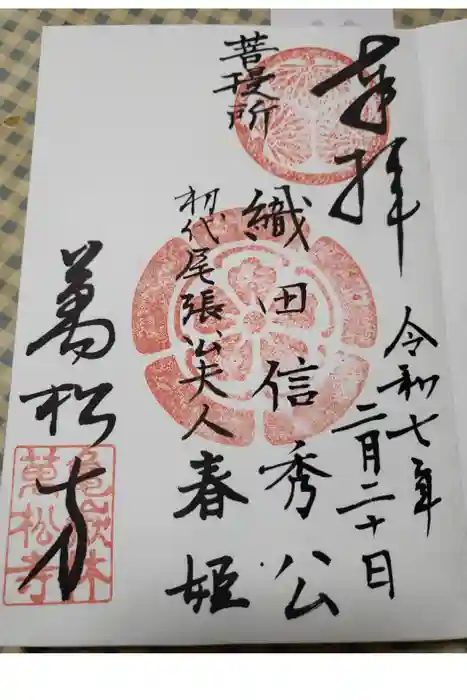 奉拝
令和七年
二月二十日
菩提所
織田信秀公
初代尾張藩夫人
春姫
萬松寺
亀嶽林
萬松寺